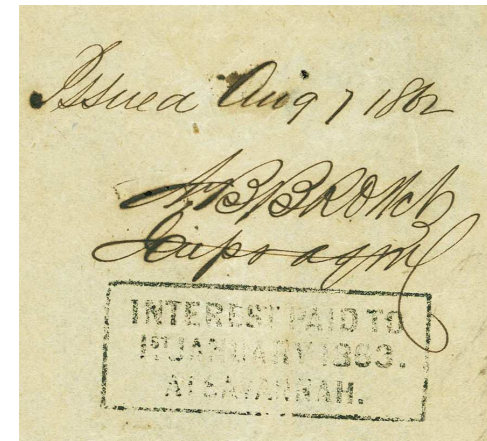 Issued Aug 7 1862
A B BRONCh
Cap & aqm
INTEREST PAID TO
1ST JANUARY 1863.
AT SAVANNAH.